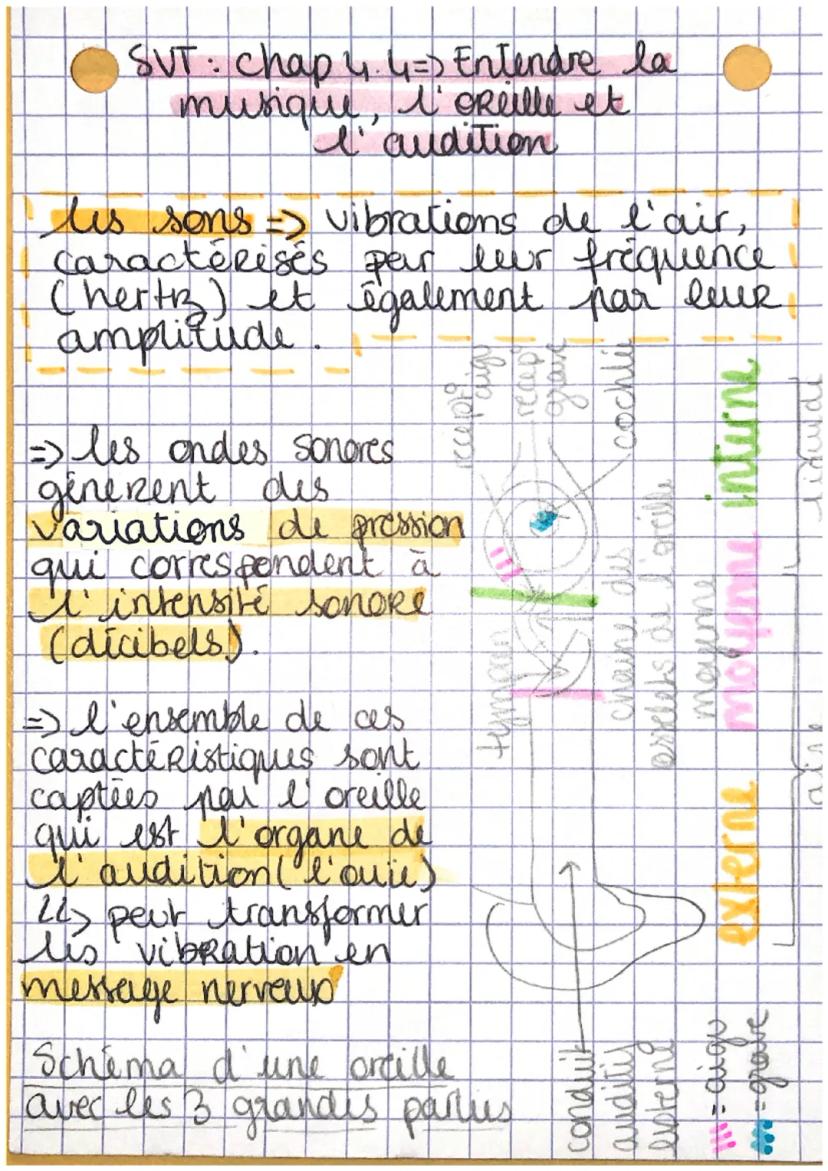 SVT : chap 4.4 => Entendre la
musique, l'oreille et
l'audition
les sons => vibrations de l'air,
caractérisés par leur fréquence
(hertz) et également par leur
amplitude.
=> les ondes sonores
génèrent des
variations de pression
qui correspondent à
l'intensité sonore
(décibels).
=> l'ensemble de ces
caractéristiques sont
captées par l'oreille
qui est l'organe de
l'audition (l'ouïe)
↳> peut transformer
les vibration en
message nerveux
Schéma d'une oreille
avec les 3 grandes parties
récept° aigu
récep° grave
cochlée
tympan
chaîne des
osselets de l'oreille
moyenne
conduit
auditif
externe
externe
moyenne
interne
aire
liquide
= aigu
= grave